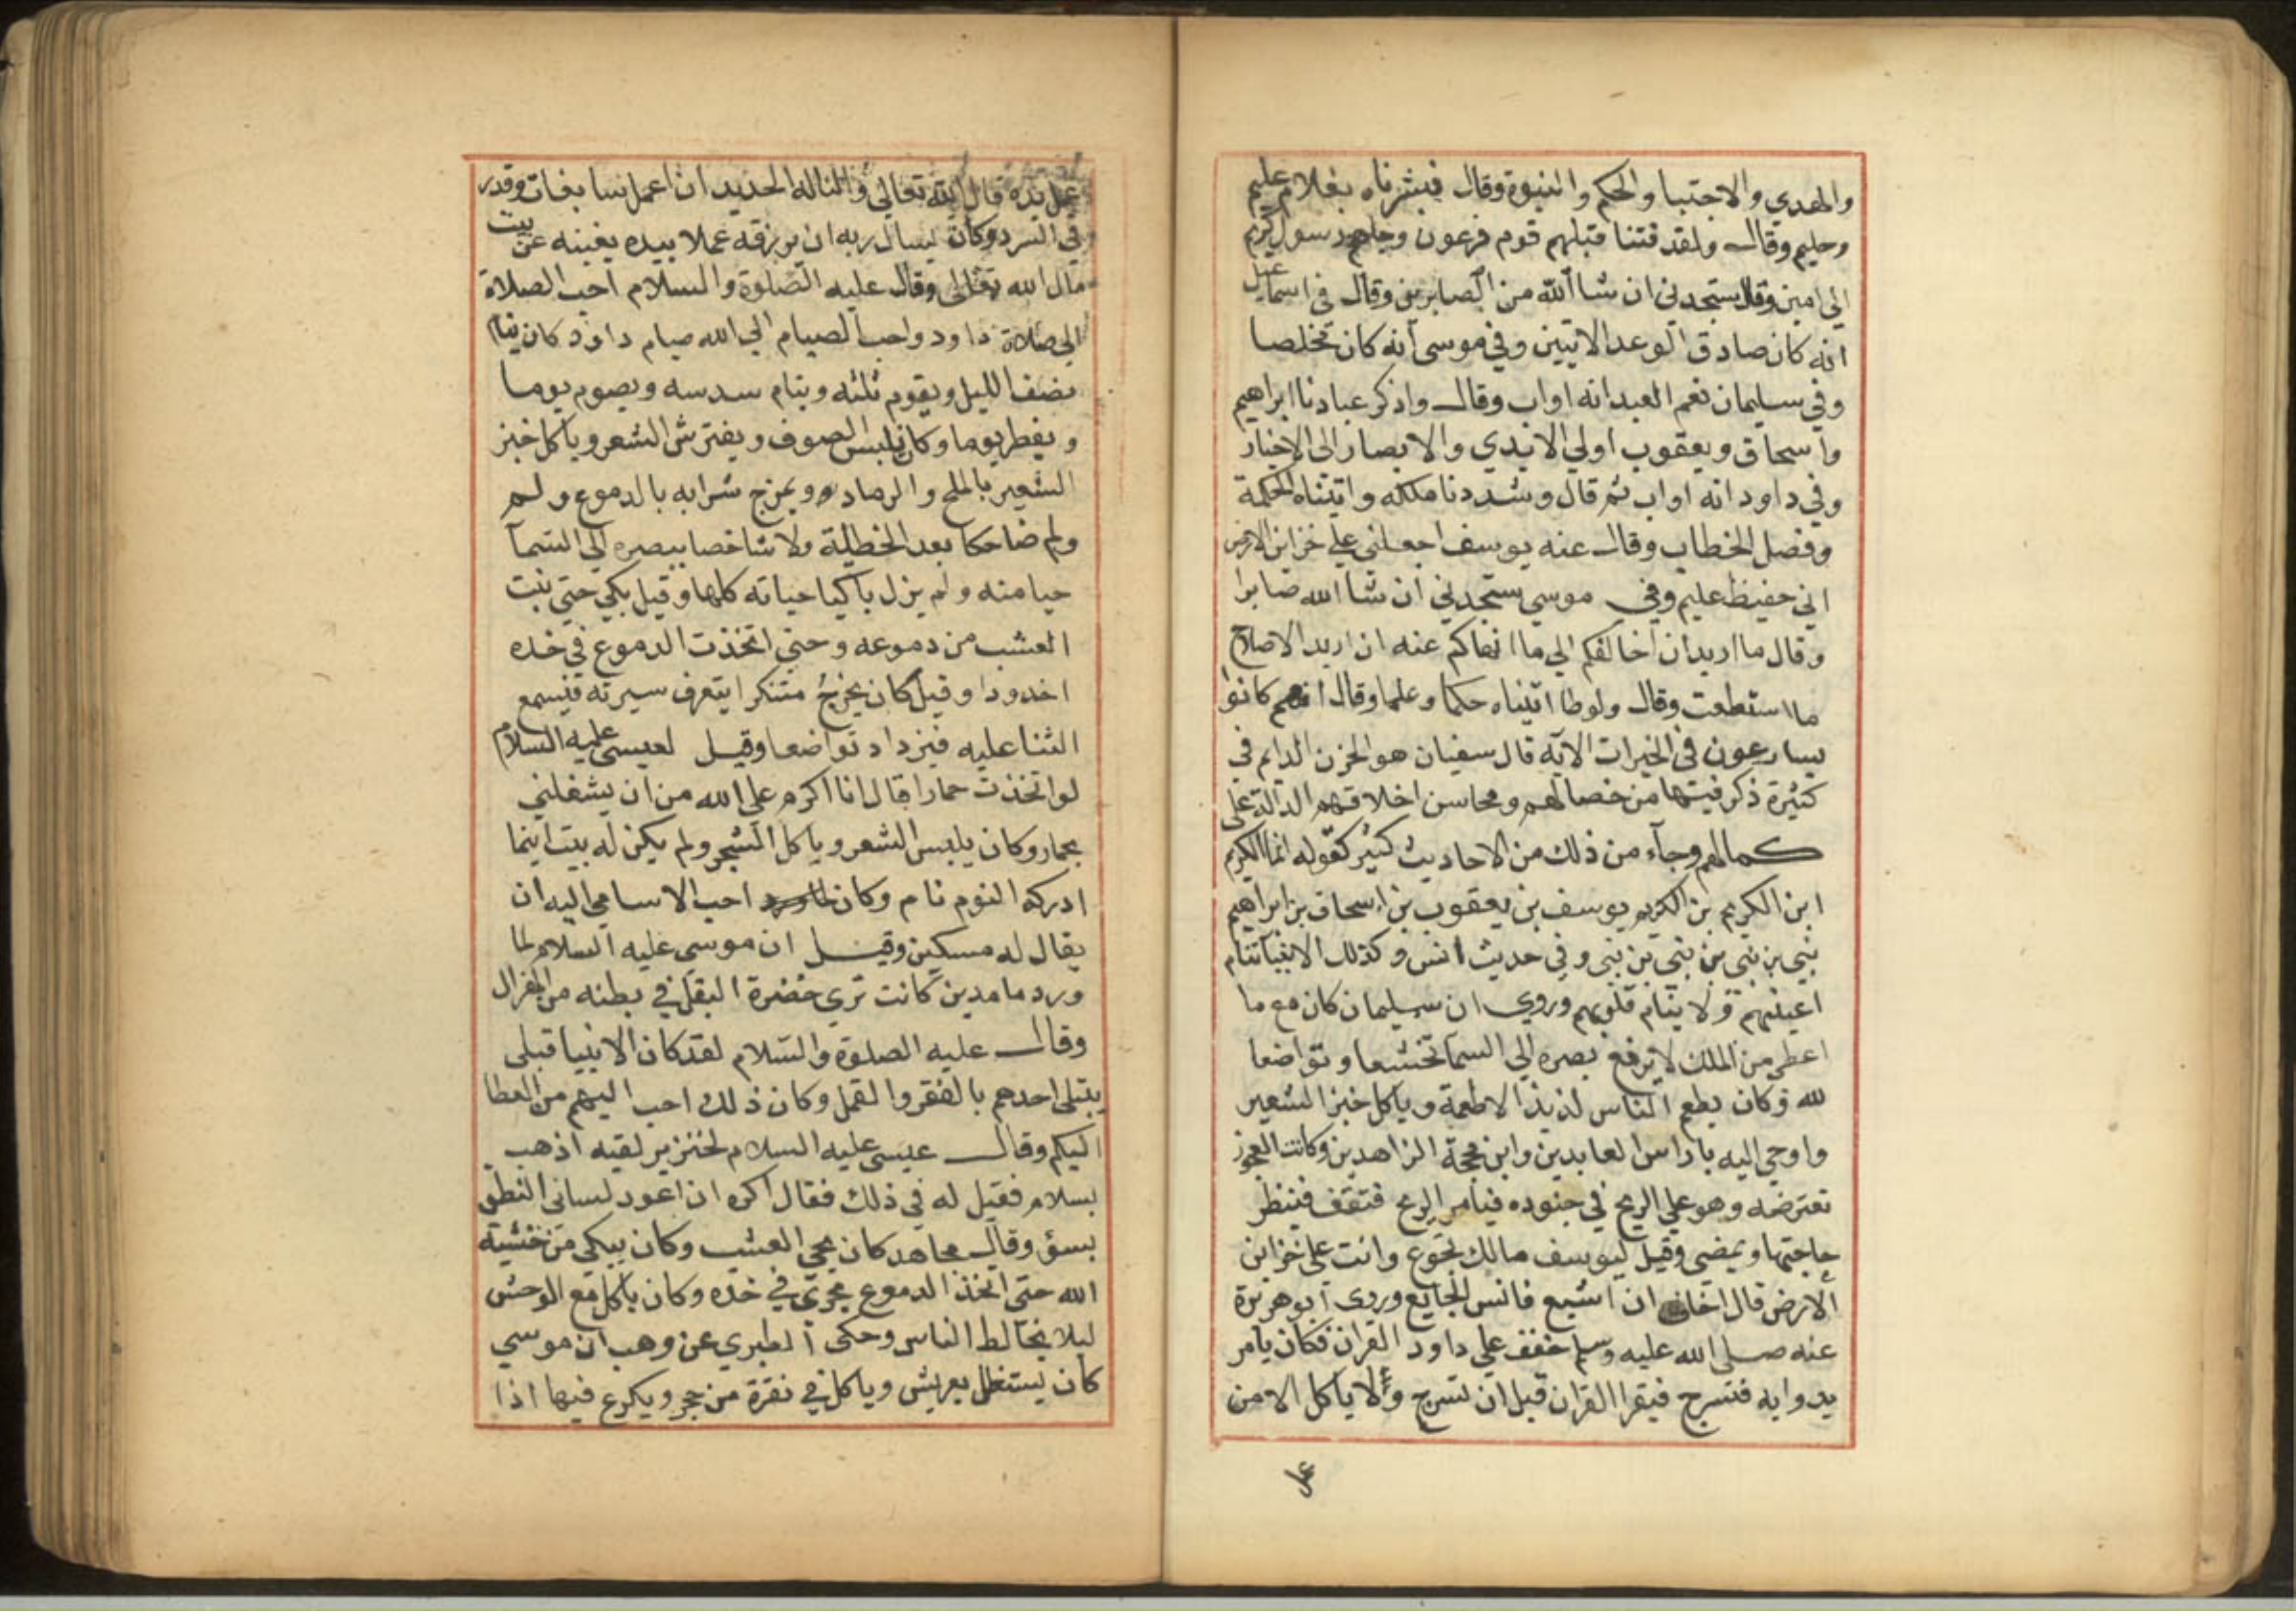 والهدي والاجتبا والحكم والنبوة وقال فبشرناه بغلام عليم
وحليم وقال ولقد فتنا قبلهم قوم فرعون وجاهم رسول كريم
الي امين وقال ستجدني ان شا الله من الصابرين وقال في اسماعيل
انه كان صادق الوعد الايتين وفي موسى انه كان مخلصا
وفي سليمان نعم العبد انه اواب وقال واذكر عبادنا ابراهيم
واسحاق ويعقوب اولي الايدي والابصار الى الاخيار
وفي داود انه اواب ثم قال وشددنا ملكه واتيناه الحكمة
وفصل الخطاب وقال عنه يوسف اجعلني علي خزاين الارض
اني حفيظ عليم وفي موسي ستجدني ان شا الله صابرا
وقال ما اريد ان اخالفكم الي ما انهاكم عنه ان اريد الا الاصلاح
ما استطعت وقال ولوطا اتيناه حكما وعلما وقال انهم كانوا
يسارعون في الخيرات الآيه قال سفيان هو الحزن الدايم في
كثيرة ذكر فيها من خصالهم ومحاسن اخلاقهم الدالة على
كمالهم وجآء من ذلك من الاحاديث كثير كقوله انما الكريم
ابن الكريم بن الكريم يوسف بن يعقوب بن اسحاق بن ابراهيم
نبي بن نبي بن نبي بن نبي وفي حديث انس وكذلك الانبيآ تنام
اعينهم ولا ينام قلوبهم وروي ان سليمان كان مع ما
اعطي من الملك لا يرفع بصره الي السمآ تخشعا وتواضعا
لله وكان يطعم الناس لذيذ الاطعمة وياكل خبز الشعير
واوحي اليه يا راس العابدين وابن محجة الزاهدين وكانت العجوز
تعترضه وهو علي الريح في جنوده فيامر الريح فتقف فينظر
حاجتها ويمضي وقيل ليوسف مالك تجوع وانت على خزاين
الارض قال اخاف ان اشبع فانس الجايع وروى ابو هريرة
عنه صلى الله عليه وسلم خفف علي داود القران فكان يامر
بدوابه فتسرج فيقرا القران قبل ان تسرج ولا ياكل الا من
عمل
عمل يده قال الله تعالي والنا له الحديد ان اعمل سابغات وقدر
في السرد وكان يسال ربه ان يرزقه عملا بيده يغينه عن بيت
مال الله تعالى وقال عليه الصلوة والسلام احب الصلاة
الى صلاة داود واحب الصيام الي الله صيام داود كان ينام
نصف الليل ويقوم ثلثه وينام سدسه ويصوم يوما
ويفطر يوما وكان يلبس الصوف ويفترش الشعر وياكل خبز
الشعير بالملح والرماد ويمزج شرابه بالدموع ولم
ولم ضاحكا بعد الخطيئة ولا شاخصا ببصره الي السمآ
حيا منه ولم يزل باكيا حياته كلها وقيل بكي حتي نبت
العشب من دموعه وحتي اتخذت الدموع في خده
اخدودا وقيل كان يخرج متنكرا يتعرف سيرته فيسمع
الثنا عليه فيزداد تواضعا وقيل لعيسى عليه السلام
لو اتخذت حمارا قال انا اكرم علي الله من ان يشغلني
بحمار وكان يلبس الشعر وياكل الشجر ولم يكن له بيت اينما
ادركه النوم نام وكان احب الاسامي اليه ان
يقال له مسكين وقيل ان موسى عليه السلام لما
ورد ما مدين كانت تري خضرة البقل في بطنه من الهزال
وقال عليه الصلوة والسلام لقد كان الانبيا قبلي
يبتلى احدهم بالفقر والقمل وكان ذلك احب اليهم من العطا
اليكم وقال عيسى عليه السلام لخنزير لقيه اذهب
بسلام فقيل له في ذلك فقال اكره ان اعود لساني النطق
بسؤ وقال مجاهد كان يحيى العشب وكان يبكي من خشية
الله حتى اتخذ الدموع مجرى في خده وكان ياكل مع الوحش
ليلا يخالط الناس وحكى الطبري عن وهب ان موسي
كان يستظل بعريش وياكل في نقرة من حجر ويكرع فيها اذا